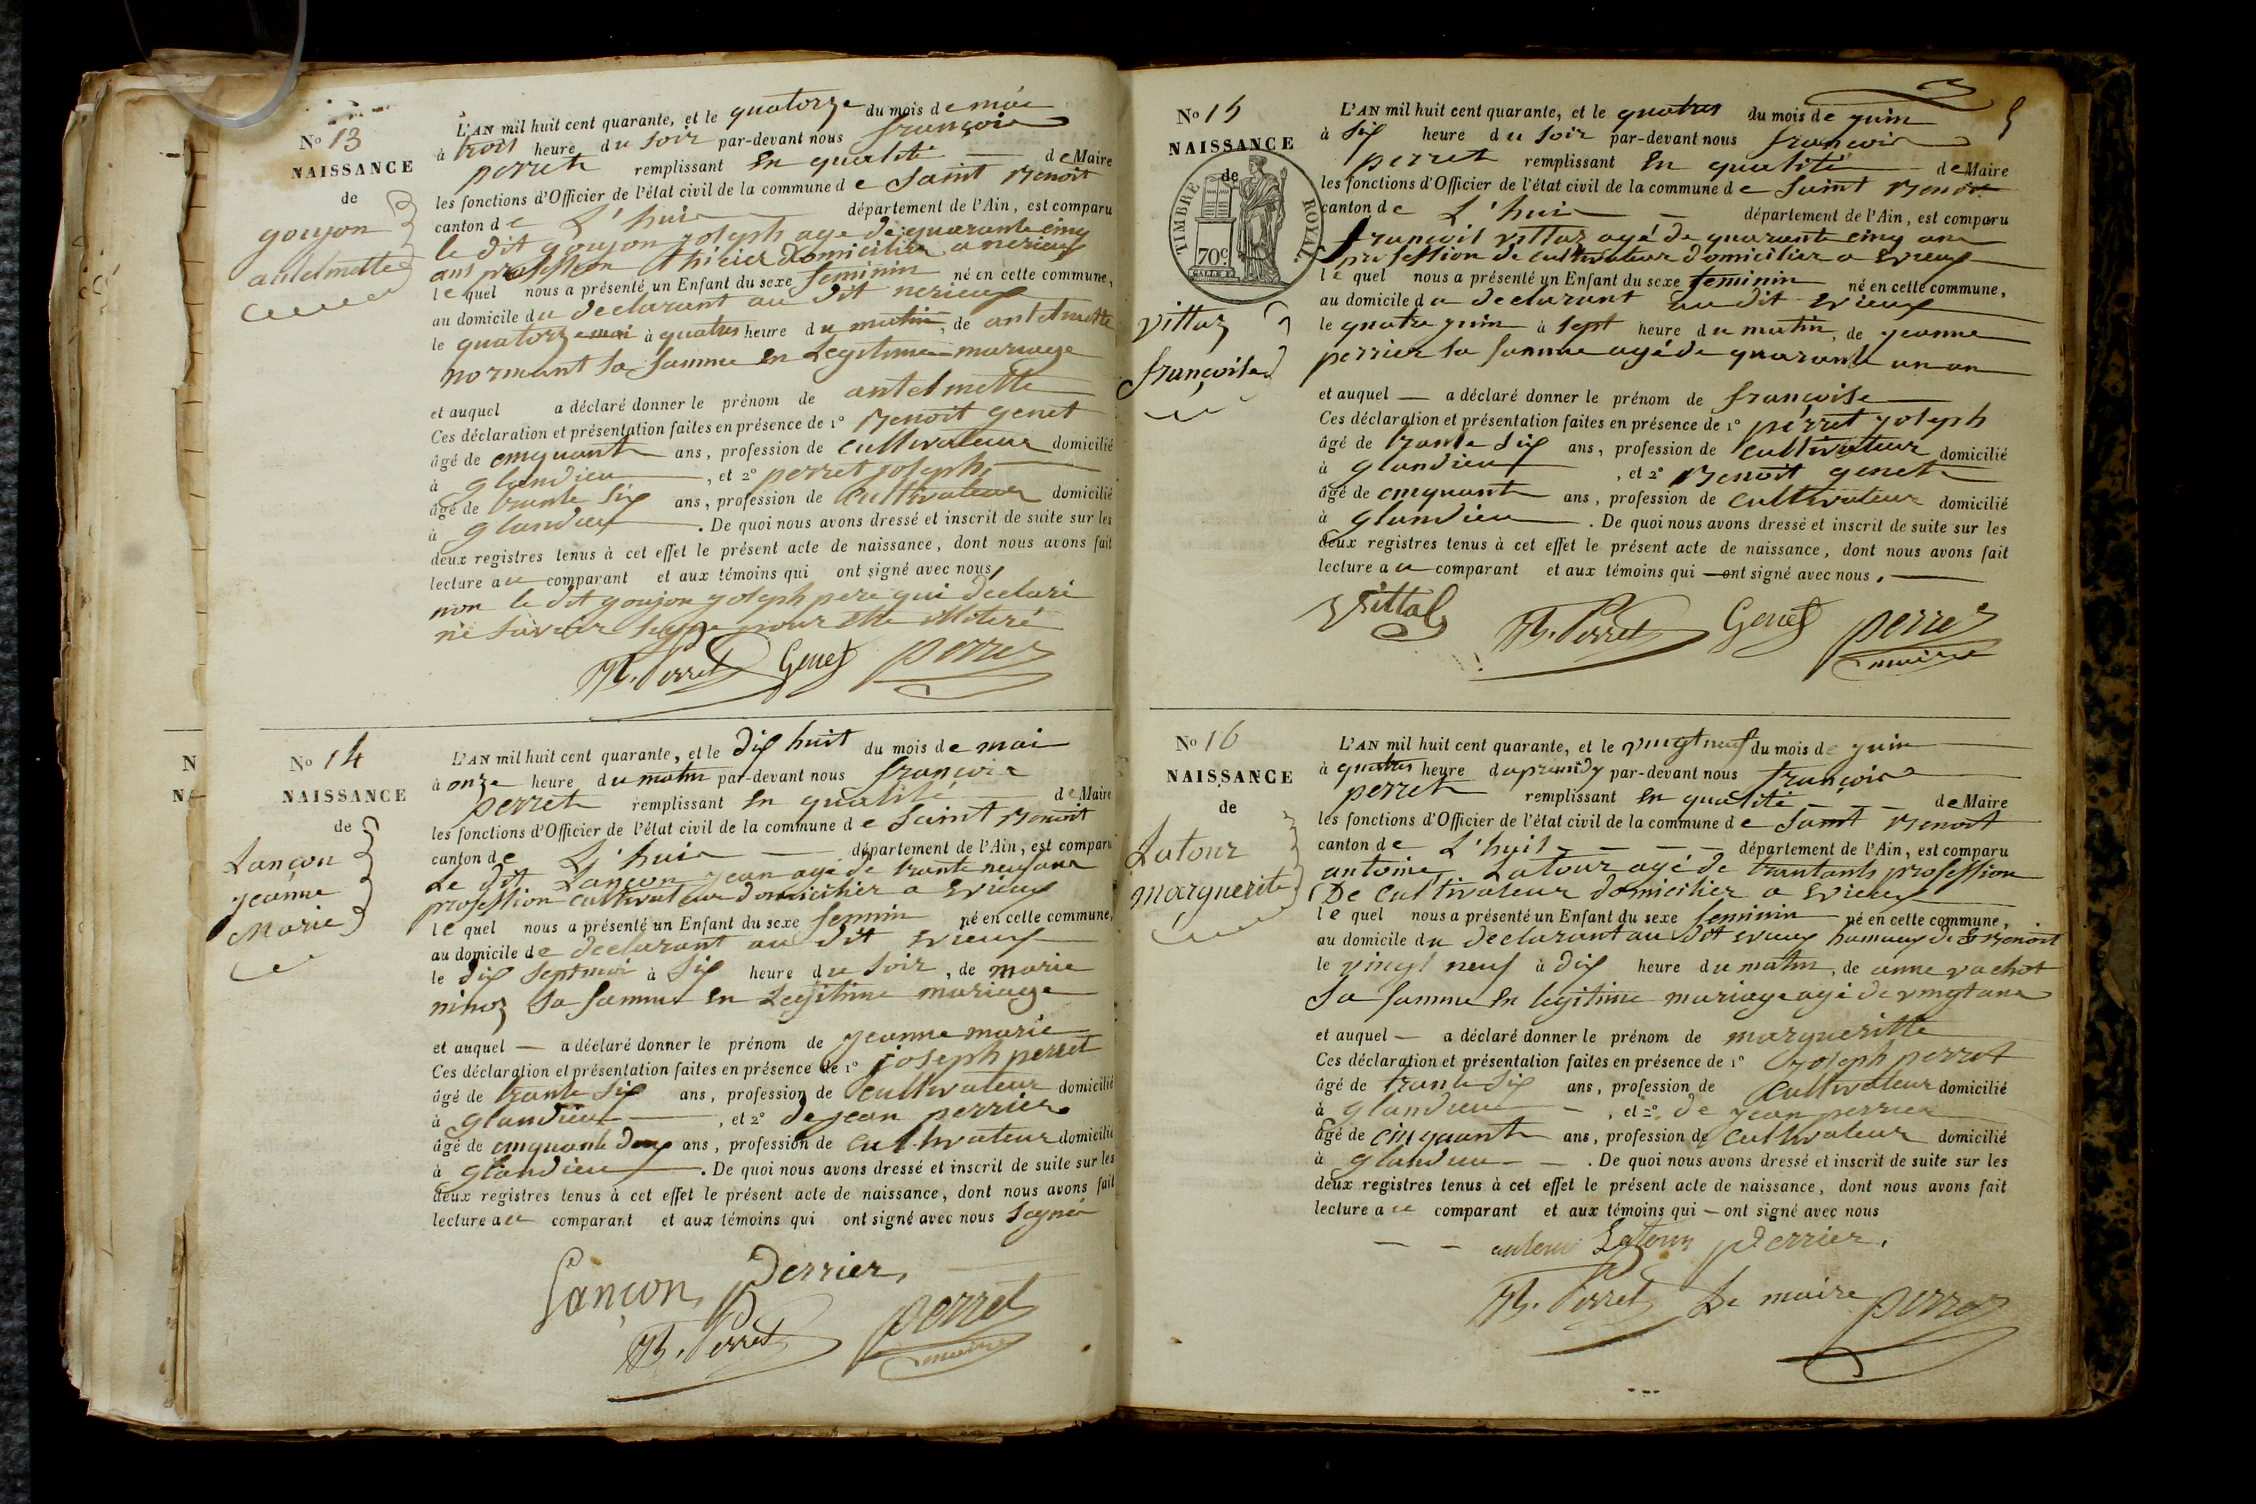 No 13
NAISSANCE
de
goujon
antelmette
L'AN mil huit cent quarante, et le quatorze du mois de mai
à trois heure du soir par-devant nous françois
perret remplissant en qualité de Maire
les fonctions d'Officier de l'état civil de la commune de Saint Benoit
canton de L'huis département de l'Ain, est comparu
le dit goujon joseph age de quarante cinq
ans profession domicilier a
le quel nous a présenté un Enfant du sexe feminin né en cette commune,
au domicile du declarant au dit
le quatorze mai à quatres heure du matin, de antelmette
normant sa famme en Legitime mariage
et auquel a déclaré donner le prénom de antelmette
Ces déclaration et présentation faites en présence de 1° Benoit genet
âgé de cinquante ans, profession de cultivateur domicilié
à glandieu, et 2° perret joseph
âgé de trante six ans, profession de cultivateur domicilié
à glandieu. De quoi nous avons dressé et inscrit de suite sur les
deux registres tenus à cet effet le présent acte de naissance, dont nous avons fait
lecture au comparant et aux témoins qui ont signé avec nous,
non le dit goujon joseph pere qui déclaré
ne savoir pour
Perret Genet perret
No 14
NAISSANCE
de
Lançon
jeanne
Marie
L'AN mil huit cent quarante, et le dix huit du mois de mai
à onze heure du matin par-devant nous françois
perret remplissant en qualité de Maire
les fonctions d'Officier de l'état civil de la commune de Saint Benoit
canton de L'huis département de l'Ain, est comparu
Le dit Lançon jean agé de trante neuf ans
profession cultivateur domicilier a Evieux
le quel nous a présenté un Enfant du sexe feminin né en cette commune,
au domicile de declarant au dit Evieux
le dix sept mai à six heure du soir, de marie
ninoz sa famme en Legitime mariage
et auquel a déclaré donner le prénom de jeanne marie
Ces déclaration et présentation faites en présence de 1° joseph perret
âgé de trante six ans, profession de cultivateur domicilié
à glandieu, et 2° de jean perrier
âgé de cinquante deux ans, profession de cultivateur domicilié
à glandieu. De quoi nous avons dressé et inscrit de suite sur les
deux registres tenus à cet effet le présent acte de naissance, dont nous avons fait
lecture au comparant et aux témoins qui ont signé avec nous signé
Lançon perrier,
Perret perret
maire
No 15
NAISSANCE
de
TIMBRE ROYAL
70c.
vittoz
françoise
L'AN mil huit cent quarante, et le quatres du mois de juin
à six heure du soir par-devant nous françois
perret remplissant en qualité de Maire
les fonctions d'Officier de l'état civil de la commune de Saint Benoit
canton de L'huis département de l'Ain, est comparu
françois vittoz agé de quarante cinq ans
profession de cultivateur domicilier a Evieux
le quel nous a présenté un Enfant du sexe feminin né en cette commune,
au domicile du declarant au dit Evieux
le quatre juin à sept heure du matin, de jeanne
perrier sa famme agé de quarante un an
et auquel a déclaré donner le prénom de françoise
Ces déclaration et présentation faites en présence de 1° perret joseph
âgé de trante six ans, profession de cultivateur domicilié
à glandieu, et 2° Benoit genet
âgé de cinquante ans, profession de cultivateur domicilié
à glandieu. De quoi nous avons dressé et inscrit de suite sur les
deux registres tenus à cet effet le présent acte de naissance, dont nous avons fait
lecture au comparant et aux témoins qui ont signé avec nous,
Perret Genet perret
maire
No 16
NAISSANCE
de
Latour
marguerite
L'AN mil huit cent quarante, et le vingt neuf du mois de juin
à quatres heure par-devant nous françois
perret remplissant en qualité de Maire
les fonctions d'Officier de l'état civil de la commune de Saint Benoit
canton de L'huis département de l'Ain, est comparu
antoine Latour agé de profession
De cultivateur domicilier a Evieux
le quel nous a présenté un Enfant du sexe feminin né en cette commune,
au domicile du declarant au dit Evieux hameux de St Benoit
le vingt neuf à dix heure du matin, de anne vachot
sa famme en legitime mariage agé de vingt ans
et auquel a déclaré donner le prénom de margueritte
Ces déclaration et présentation faites en présence de 1° joseph perret
âgé de trante six ans, profession de cultivateur domicilié
à glandieu, et 2° de jean perrier
âgé de cinquante ans, profession de cultivateur domicilié
à glandieu. De quoi nous avons dressé et inscrit de suite sur les
deux registres tenus à cet effet le présent acte de naissance, dont nous avons fait
lecture au comparant et aux témoins qui ont signé avec nous
Latour perrier.
Perret Le maire perret